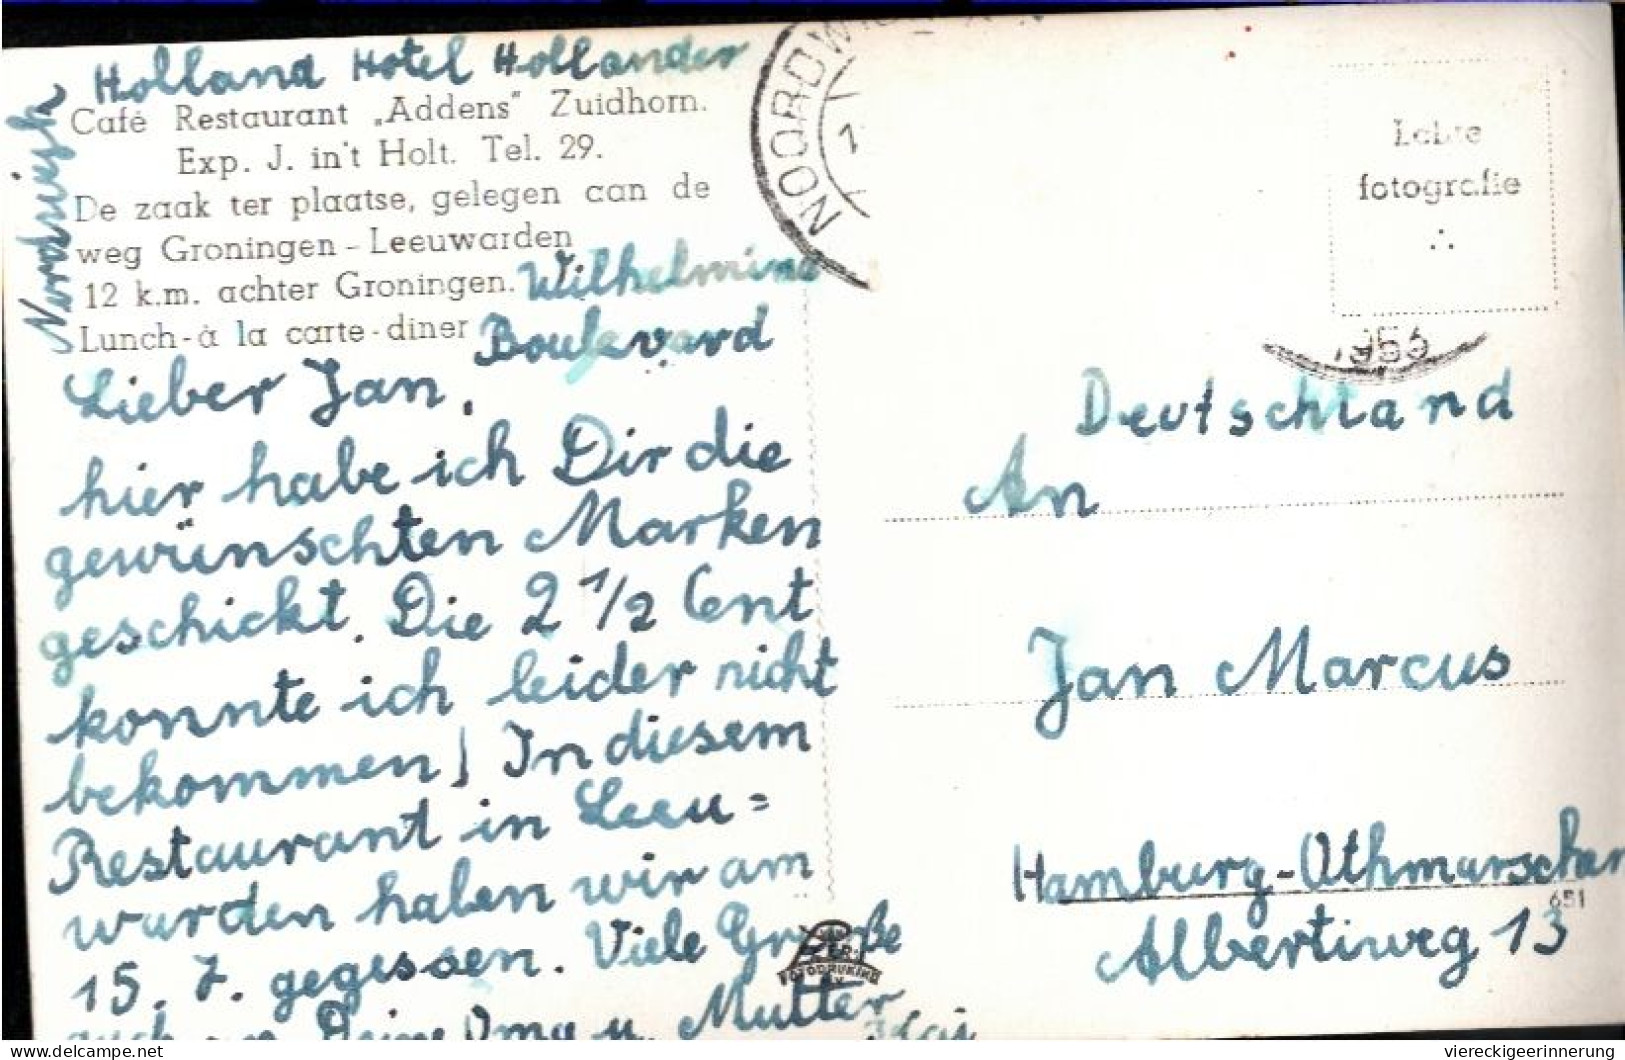 Holland Hotel Hollander
Café Restaurant „Addens" Zuidhorn.
Exp. J. in't Holt. Tel. 29.
De zaak ter plaatse, gelegen aan de
weg Groningen - Leeuwarden
12 k.m. achter Groningen. Wilhelmina
Lunch - à la carte - diner Boulevard
Lieber Jan,
hier habe ich Dir die
gewünschten Marken
geschickt. Die 2 1/2 Cent
konnte ich leider nicht
bekommen! In diesem
Restaurant in Leeu=
warden haben wir am
15. 7. gegessen. Viele Grüße
auch an Deine Oma u. Mutter
Kai
NOORDWI
Echte
fotografie
Deutschland
An
Jan Marcus
Hamburg-Othmarschen
651
Albertiweg 13
FOTODRUKIND
viereckigeerinnerung